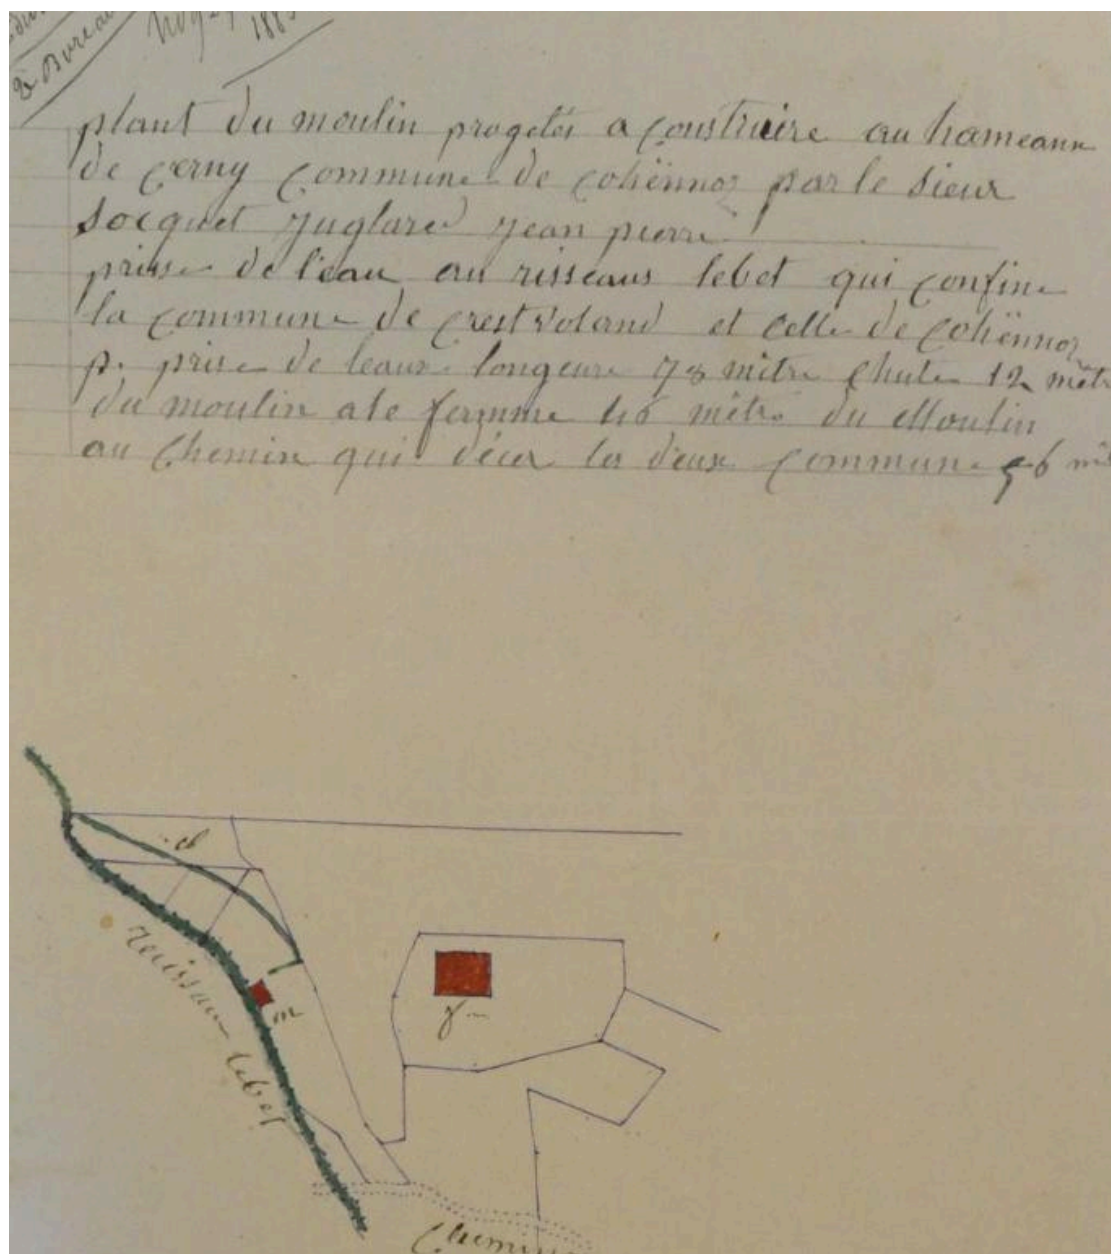 2e Bureau
188
plant du moulin progetés a construire au hameaux
de cerny commune de cohënnoz par le sieur
socquet juglard jean pierre
prise de l'eau au risseaus lebet qui confine
la commune de crestvoland et celle de cohënnoz
p. prise de leaux longeure 78 mètre chute 12 mètr
du moulin a le femme 46 mètre du Moulin
au chemin qui les deux commune 56 m
ruisseau lebet
m
f
Chemin